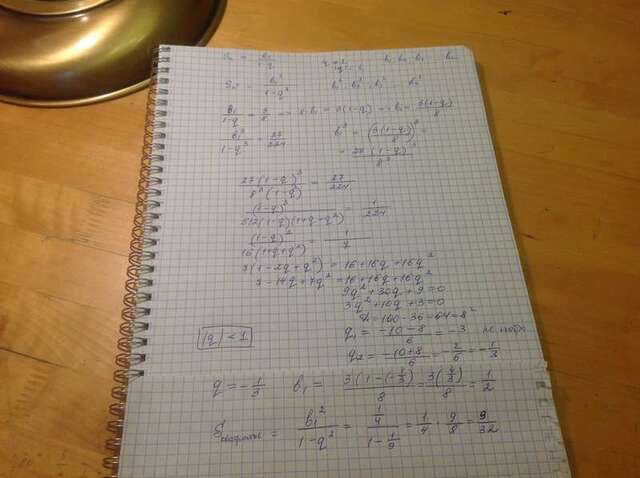 S₂ = b₁³ / (1-q³)
b₁/(1-q) = 3/8 => 8b₁ = 3(1-q) => b₁ = 3(1-q)/8
b₁³/(1-q³) = 27/224 b³ = (3(1-q)/8)³ =
= 27(1-q)³/8³
27(1-q)³/(8³(1-q³)) = 27/224
(1-q)³/(512(1-q)(1+q+q²)) = 1/224
(1-q)²/(16(1+q+q²)) = 1/7
7(1-2q+q²) = 16+16q+16q²
7-14q+7q² = 16+16q+16q²
9q²+30q+9=0
3q²+10q+3=0
d=100-36=64=8²
|q| < 1 q₁ = (-10-8)/6 = -3 не подх
q₂ = (-10+8)/6 = -2/6 = -1/3
q = -1/3 b₁ = 3(1-(-1/3))/8 = 3(4/3)/8 = 1/2
= b₁²/(1-q²) = (1/4)/(1-1/9) = 1/4 · 9/8 = 9/32